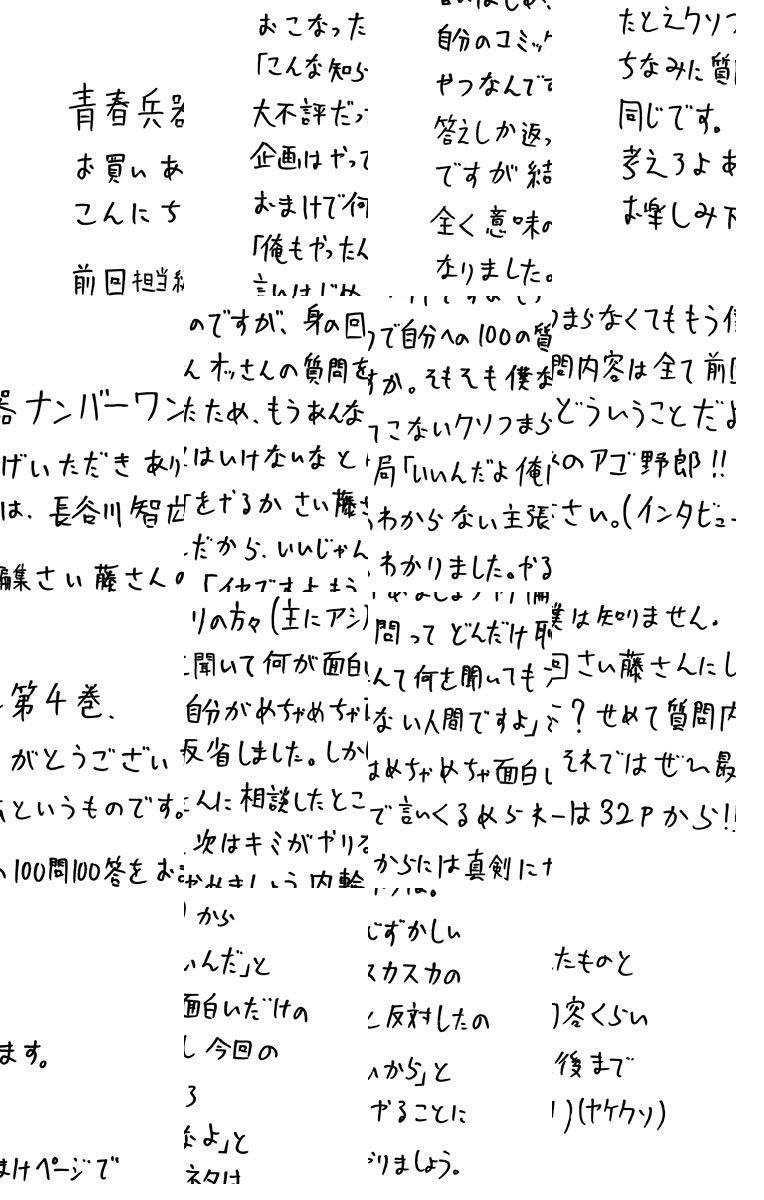 青春兵器
お買いあ
こんにち
前回担当編
おこなった
「こんな知ら
大不評だっ
企画はやって
おまけで何
「俺もやったん
言いはじめ
自分のコミック
やつなんです
答えしか返っ
ですが結
全く意味の
なりました。
たとえクソつ
ちなみに質問
同じです。
考えろよあ
お楽しみ下
器ナンバーワン
げいただきあり
は、長谷川智広
編集さい藤さんの
のですが、身の回
んオッさんの質問を
たため、もうあんな
はいけないなと
をやるか さい藤さ
だから、いいじゃん
「イヤですよもう
つで自分への100の質
すか。そもそも僕な
てこないクソつまら
局「いいんだよ俺が
わからない主張
わかりました。やる
つまらなくてももう僕
問内容は全て前回
どういうことだよ
のアゴ野郎!!
さい。(インタビュー
第4巻、
がとうござい
というものです。
100問100答をお
リの方々(主にアシ
聞いて何が面白い
自分がめちゃめちゃ
反省しました。しかし
んに相談したとこ
次はキミがやりな
やめましょう内輪
問ってどんだけ恥
んて何を聞いても
ない人間ですよ」
はめちゃめちゃ面白い
で言いくるめられ
からには真剣にや
僕は知りません。
回さい藤さんにし
?せめて質問内
それではぜひ最
ーは32Pから!!
ます。
まけページで
から
んだ」と
面白いだけの
し今回の
ろ
なよ」と
ネタは
むずかしい
スカスカの
と反対したの
いから」と
やることに
いりましょう。
たものと
容くらい
後まで
リ)(ヤケクソ)